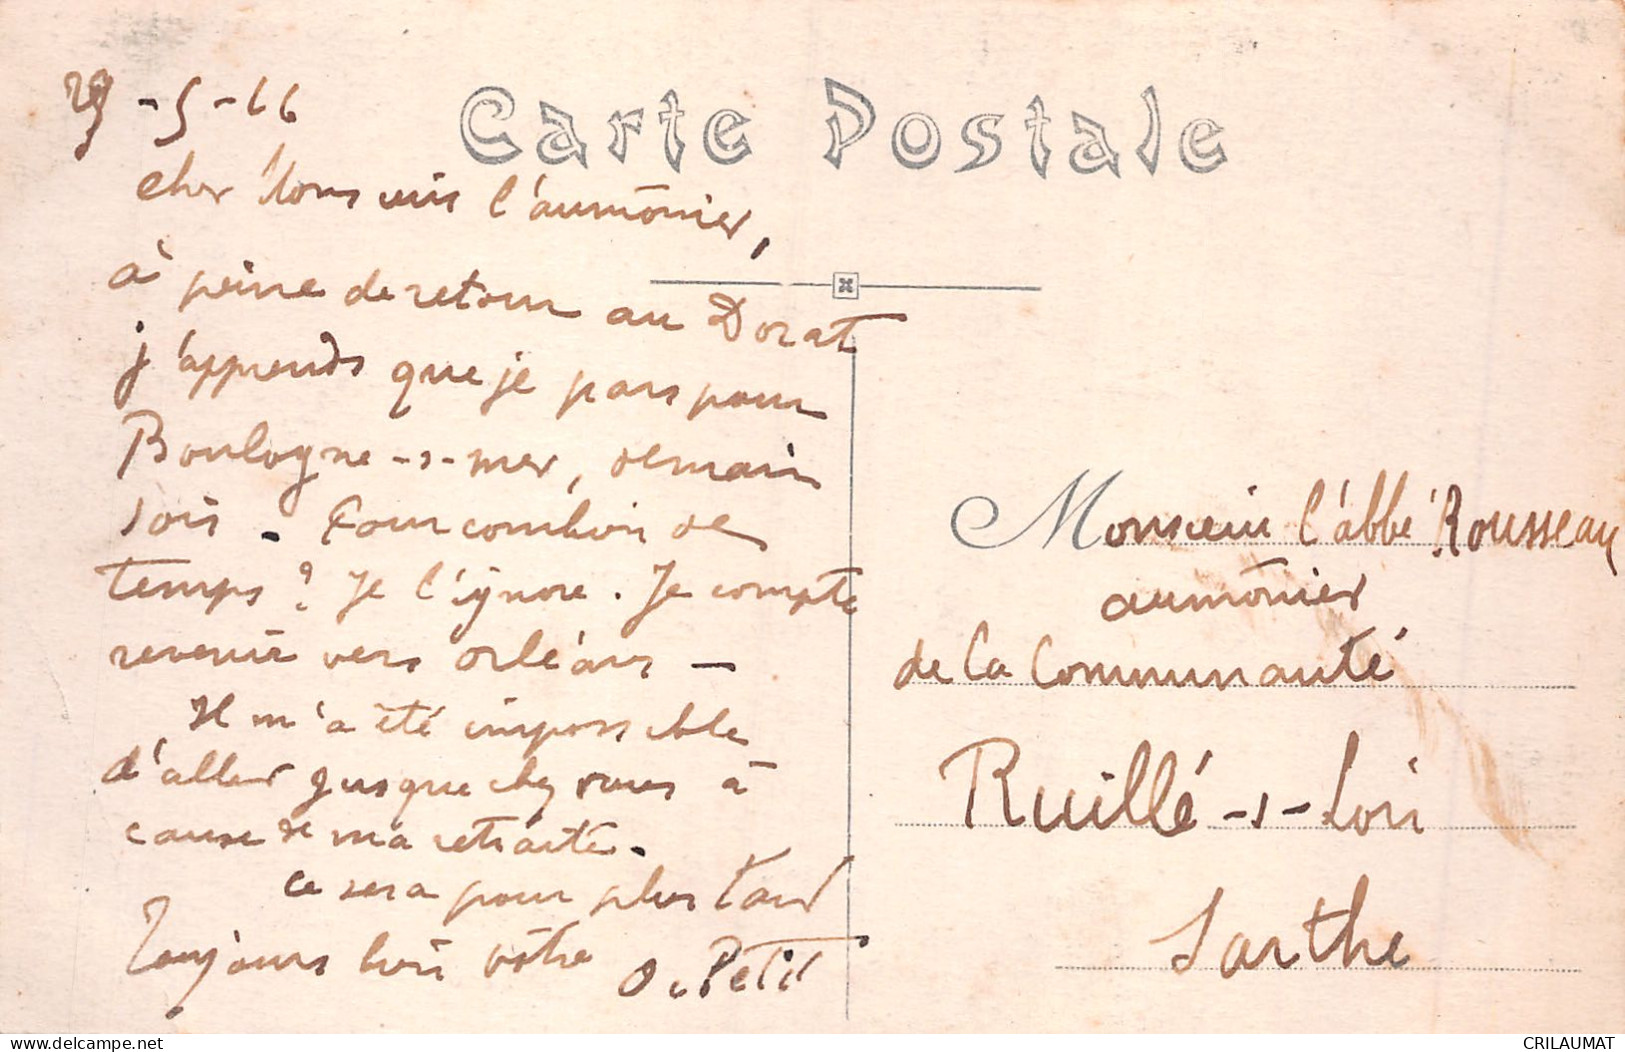 Carte Postale
29-5-16
cher Monsieur l'aumônier,
à peine de retour au Dorat
j'apprends que je pars pour
Boulogne-s-mer, demain
soir. Pour combien de
temps ? Je l'ignore. Je compte
revenir vers Orléans -
Il m'a été impossible
d'aller jusque chez vous à
cause de ma retraite.
Ce sera pour plus tard
Toujours bien vôtre
O. Petit
Monsieur l'abbé Rousseau
aumônier
de la Communauté
Ruillé-s-Loir
Sarthe
delcampe.net
CRILAUMAT